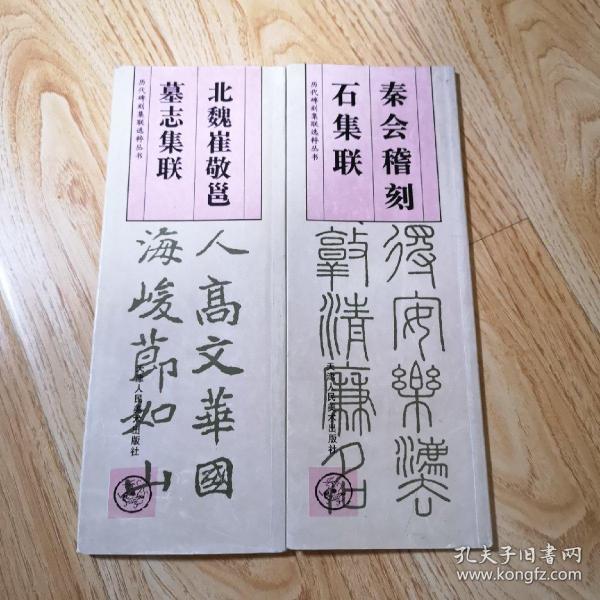 北魏崔敬邕
墓志集联
历代碑刻集联选粹丛书
人高文華國
海峻莭如山
天津人民美术出版社
秦会稽刻
石集联
历代碑刻集联选粹丛书
得安樂
清廉名
天津人民美术出版社
孔夫子旧书网
www.kongfz.com